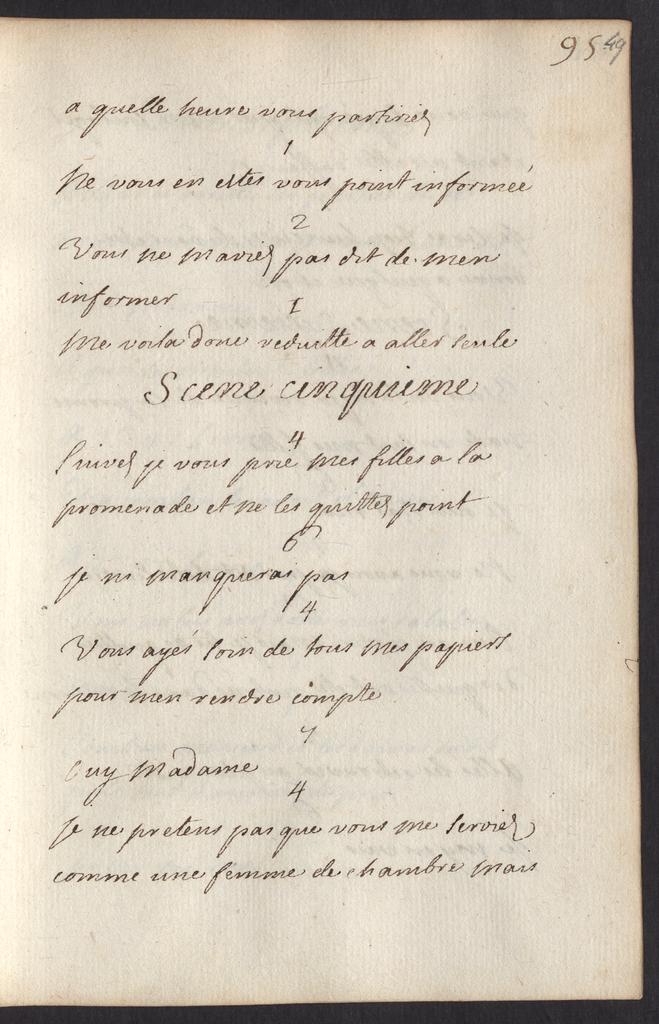 95 49
a quelle heure vous partiriez
1
Ne vous en estes vous point informeé
2
Vous ne maviez pas dit de men
informer
1
Me voila donc reduitte a aller seule
Scene cinquieme
4
suivez je vous prie mes filles a la
promenade et ne les quittez point
6
je ni manquerai pas
4
Vous ayés soin de tous mes papiers
pour men rendre compte
7
ouy Madame
4
je ne pretens pas que vous me serviez
comme une femme de chambre mais